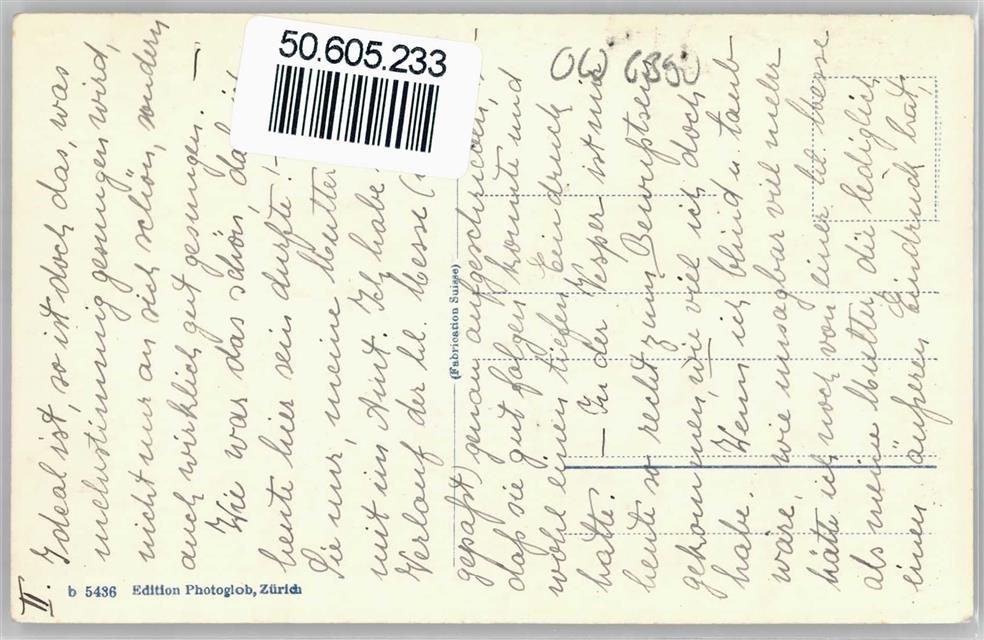 II.
Ideal ist, so ist doch das, was
mehrstimmig gesungen wird,
nicht nur an sich schön, sondern
auch wirklich gut gesungen. —
Wie war das schön, da
heute hier sein durfte!
Sie nur, meine Mutter
mit im Amt. Ich habe
Verlauf der hl. Messe (
gepaßt) genau aufgeschrieben,
daß sie gut folgen konnte und
wohl einen tiefen Eindruck
hatte. — In der Vesper ist mir
heute so recht zum Bewußtsein
gekommen, wie viel ich doch
habe. Wenn ich blind u. taub
wäre, wie unsagbar viel mehr
hätte ich noch von einer hl. Messe
als meine Mutter, die lediglich
einen äußeren Eindruck hat,
50.605.233
(Fabrication Suisse)
b 5436 Edition Photoglob, Zürich